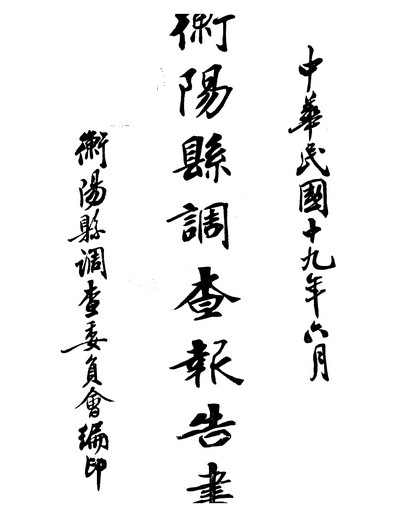 中華民國十九年六月
衡陽縣調查報告書
衡陽縣调查委員會编印